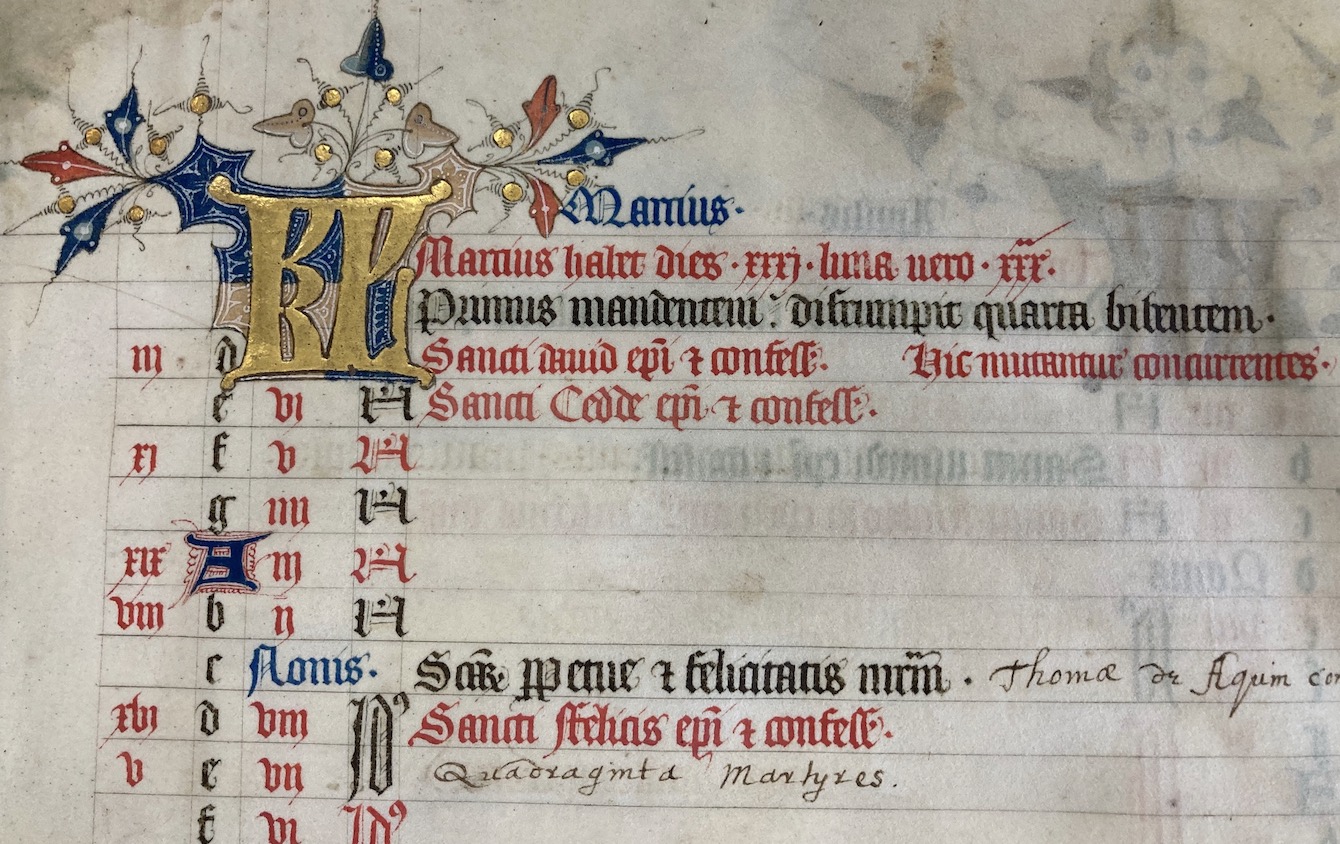 Martius.
KL Martius habet dies .xxxj. luna uero .xxx.
Primus mandentem: disrumpit quarta bibentem.
iij d Sancti dauid epī ⁊ confess. Hic mutantur concurrentes.
e vj N Sancti Cedde epī ⁊ confess.
xj f v N
g iiij N
xix A iij N
viij b ij N
c Nonis. Scāꝝ ꝑpetue ⁊ felicitatis mrm̄. Thomæ de Aquin
xvj d viij Idꝰ Sancti Felicis epī ⁊ confess.
v e vij Quadraginta Martyres.
f vj Idꝰ